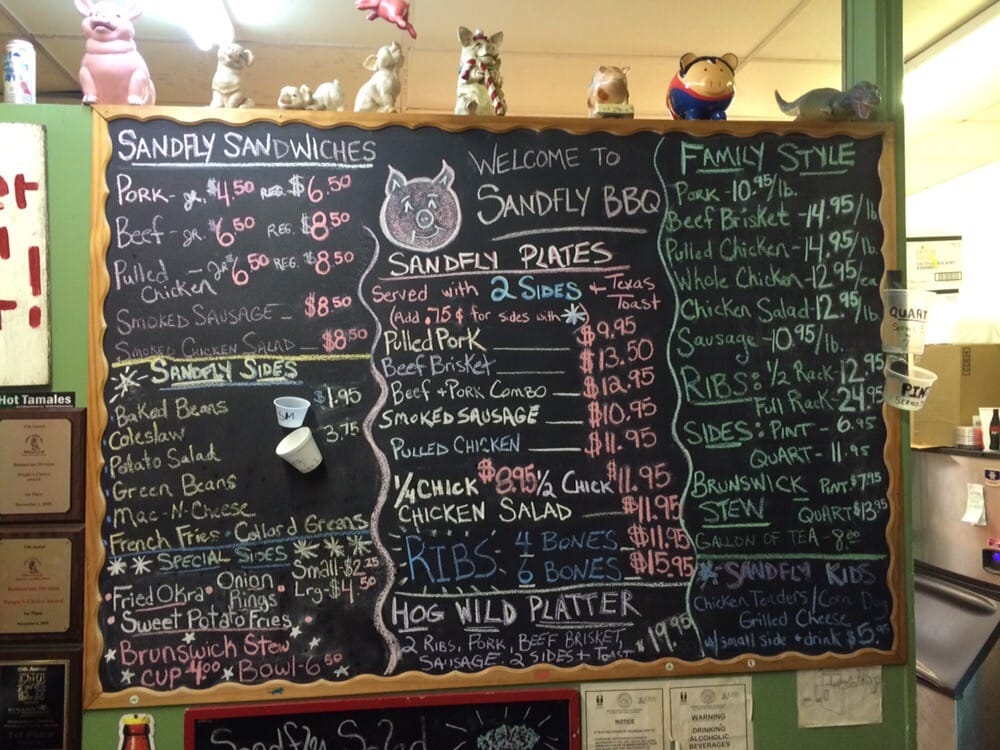 SANDFLY SANDWICHES
PORK - JR. $4.50 REG. $6.50
Beef - JR. $6.50 REG. $8.50
Pulled Chicken - JR. $6.50 REG. $8.50
SMOKED SAUSAGE - $8.50
SMOKED CHICKEN SALAD - $8.50
SANDFLY SIDES
Baked Beans $1.95
Coleslaw 3.75
Potato Salad
Green Beans
Mac-N-Cheese
French Fries · Collard Greens
SPECIAL SIDES
Small - $2.25
Lrg - $4.50
Fried Okra · Onion Rings
Sweet Potato Fries
Brunswick Stew
CUP 4.00 Bowl - 6.50
WELCOME TO
SANDFLY BBQ
SANDFLY PLATES
Served with 2 SIDES + Texas Toast
(Add .75¢ for sides with *
Pulled Pork $9.95
Beef Brisket $13.50
Beef + Pork Combo $12.95
SMOKED SAUSAGE $10.95
PULLED CHICKEN $11.95
1/4 CHICK $8.95 1/2 CHICK $11.95
CHICKEN SALAD $11.95
RIBS - 4 BONES $11.95
6 BONES $15.95
HOG WILD PLATTER
2 RIBS, PORK, BEEF BRISKET,
SAUSAGE. 2 SIDES + TOAST $19.95
FAMILY STYLE
Pork - 10.95/lb.
Beef Brisket - 14.95/lb
Pulled Chicken - 14.95/lb.
Whole Chicken - 12.95/ea
Chicken Salad - 12.95/lb
Sausage - 10.95/lb.
RIBS: 1/2 Rack - 12.95
Full Rack - 24.95
SIDES: PINT - 6.95
QUART - 11.95
BRUNSWICK STEW PINT $7.95
QUART $13.95
GALLON OF TEA - 8.00
* SANDFLY KIDS
Chicken Tenders / Corn Dog
Grilled Cheese
w/ small side + drink $5.95
QUART
PINT
Hot Tamales
Sandfly Salad
NOTICE
WARNING
DRINKING
ALCOHOLIC
BEVERAGES